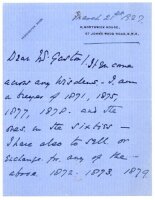 March 21st 1927
ST JOHNS WOOD ROAD, N.W.8.
Dear Mr Gaston, If you come
across any Wisdens. I am
a buyer of 1871, 1875,
1877, 1878. and the
ones in the Sixties -
I have also to sell or
exchange for any of the
above 1872. - 1873. 1879